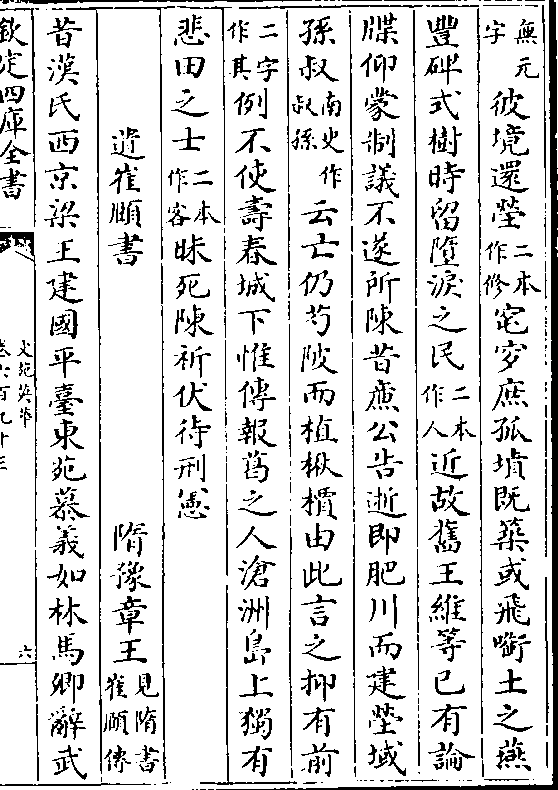 無元字彼境還塋二本作修窀穸庶孤墳既築或飛銜土之燕
豐碑式樹時留墮淚之民二本作人近故舊王維等已有論
牒仰蒙制議不遂所陳昔廉公告逝即肥川而建塋域
孫叔南史作叔孫云亡仍芍陂而植楸檟由此言之抑有前
二字作其例不使壽春城下惟傳報葛之人滄洲島上獨有
悲田之士二本作客昧死陳祈伏待刑憲
遺崔賾書 隋豫章王見隋書崔賾傳
昔漢氏西京梁王建國平臺東苑慕義如林馬卿辭武
欽定四庫全書
文苑英華
卷六百九十三
六